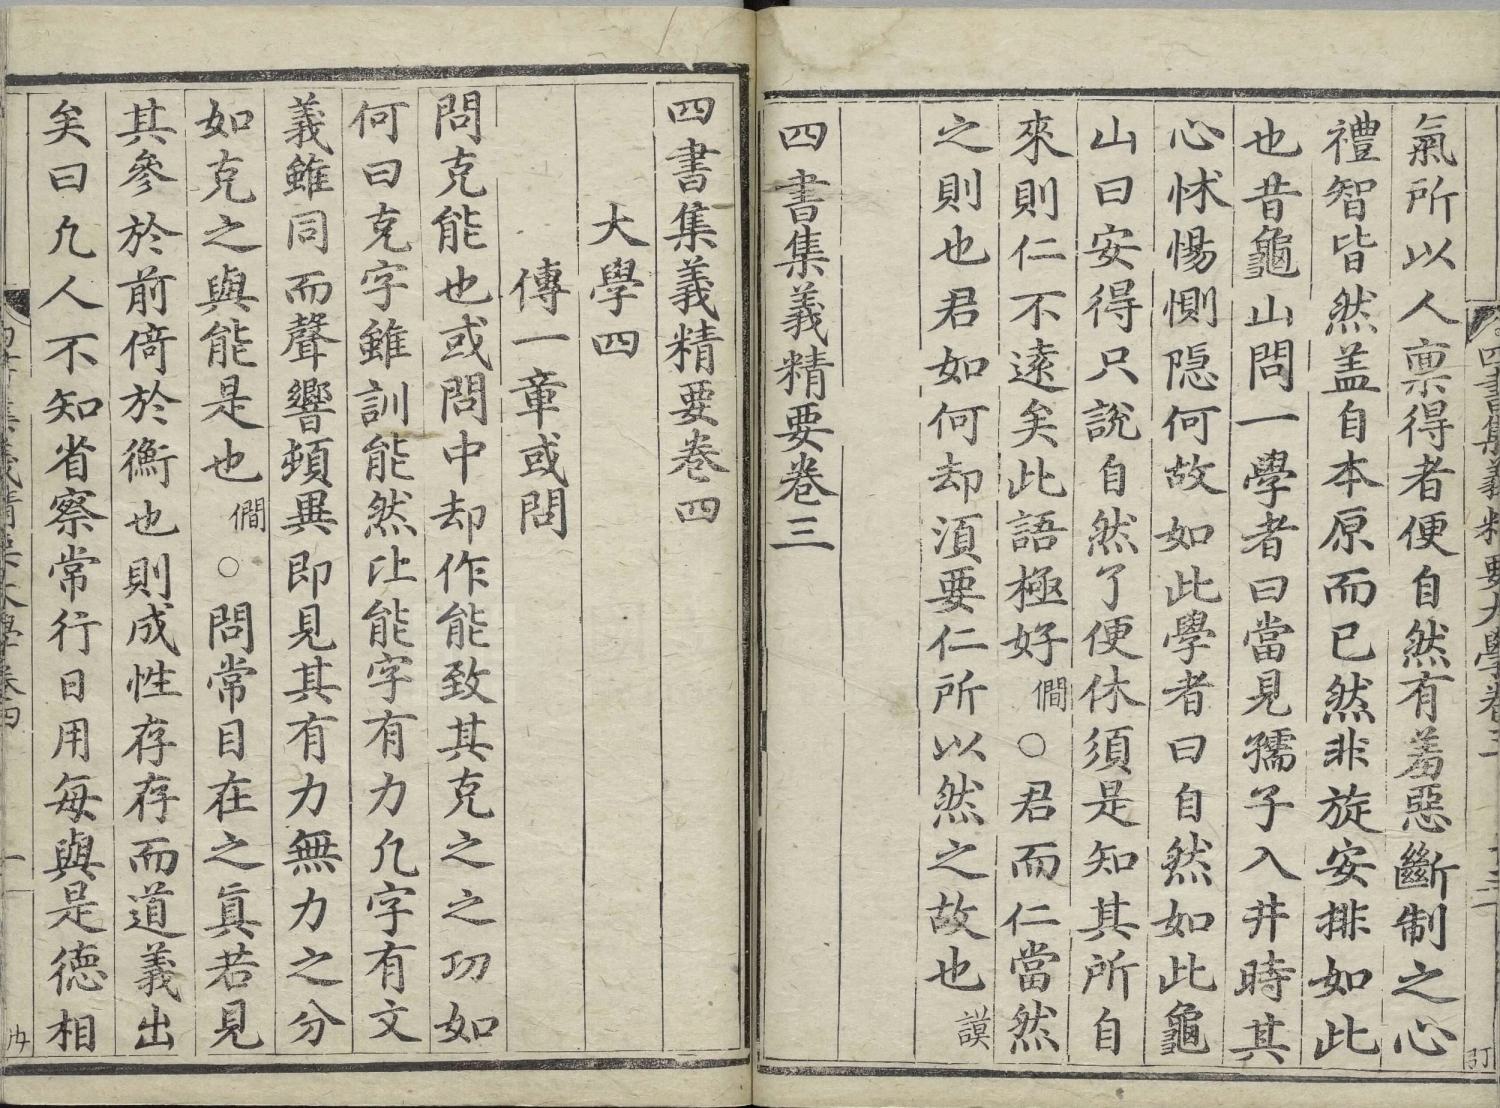 四書集義精要大學卷三
氣所以人禀得者便自然有羞惡斷制之心
禮智皆然盖自本原而已然非旋安排如此
也昔龜山問一學者曰當見孺子入井時其
心怵惕惻隠何故如此學者曰自然如此龜
山曰安得只說自然了便休須是知其所自
來則仁不遠矣此語極好僩○君而仁當然
之則也君如何却湏要仁所以然之故也謨
四書集義精要卷三
四書集義精要卷四
大學四
傳一章或問
問克能也或問中却作能致其克之之功如
何曰克字雖訓能然比能字有力凢字有文
義雖同而聲響頻異即見其有力無力之分
如克之與能是也僩○問常目在之真若見
其參於前倚於衡也則成性存存而道義出
矣曰凢人不知省察常行日用每與是德相
四書集義精要大學卷四
一